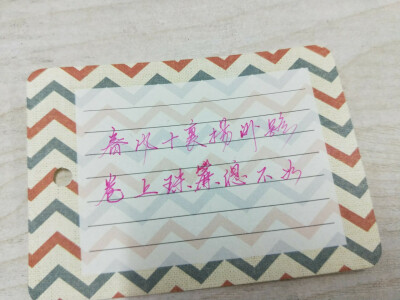 春风十裏揚州路,
卷上珠簾總不如